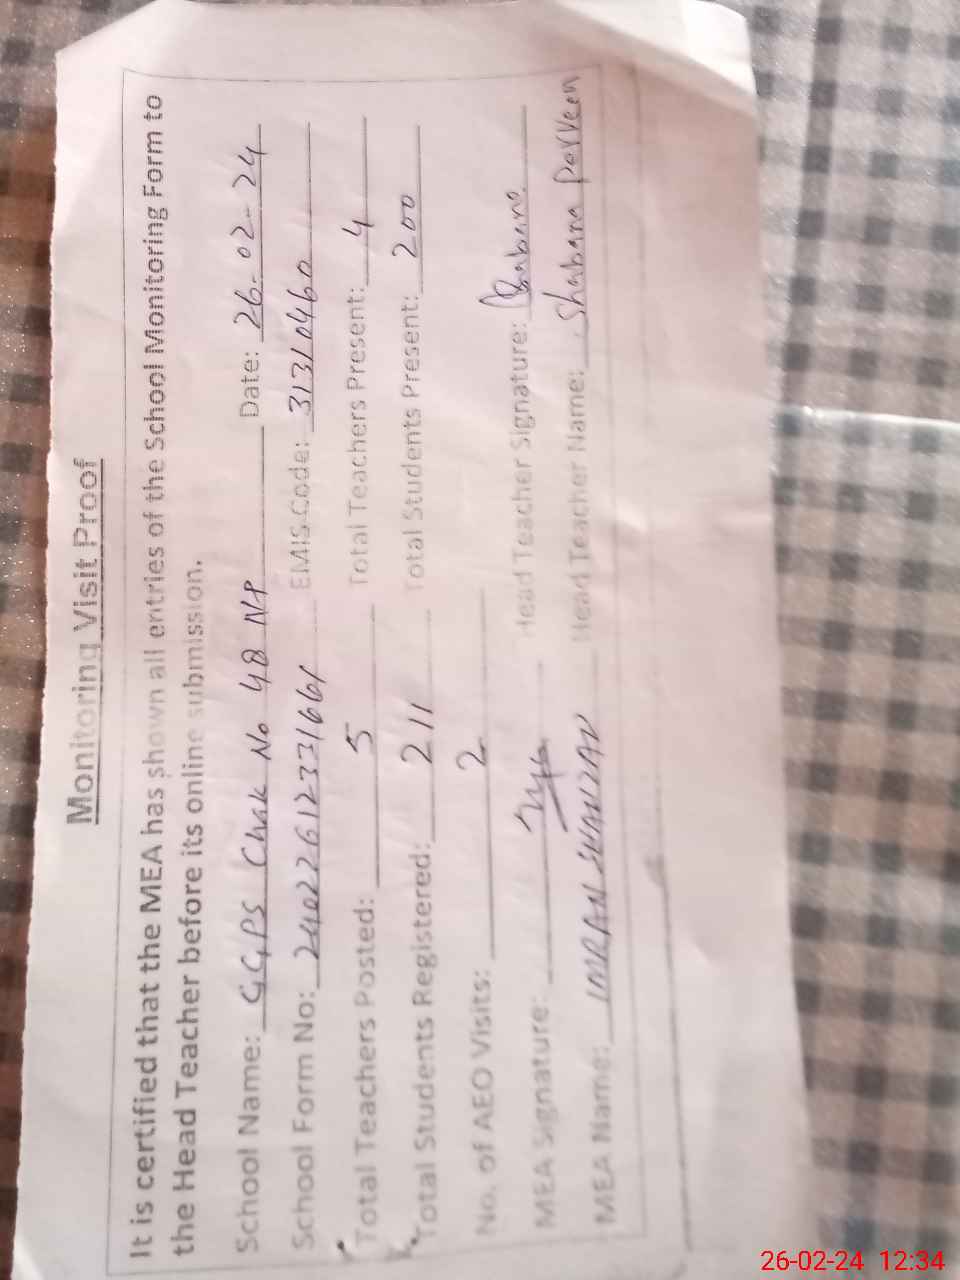 Monitoring Visit Proof
It is certified that the MEA has shown all entries of the School Monitoring Form to
the Head Teacher before its online submission.
School Name: G.G.PS Chak No 48 NP Date: 26-02-24
School Form No: 24022612331661 EMIS Code: 31310460
Total Teachers Posted: 5 Total Teachers Present: 4
Total Students Registered: 211 Total Students Present: 200
No. of AEO Visits: 2
MEA Signature: Head Teacher Signature: Shabana
MEA Name: IMRAN SHAHZAD Head Teacher Name: Shabana Parveen
26-02-24 12:34